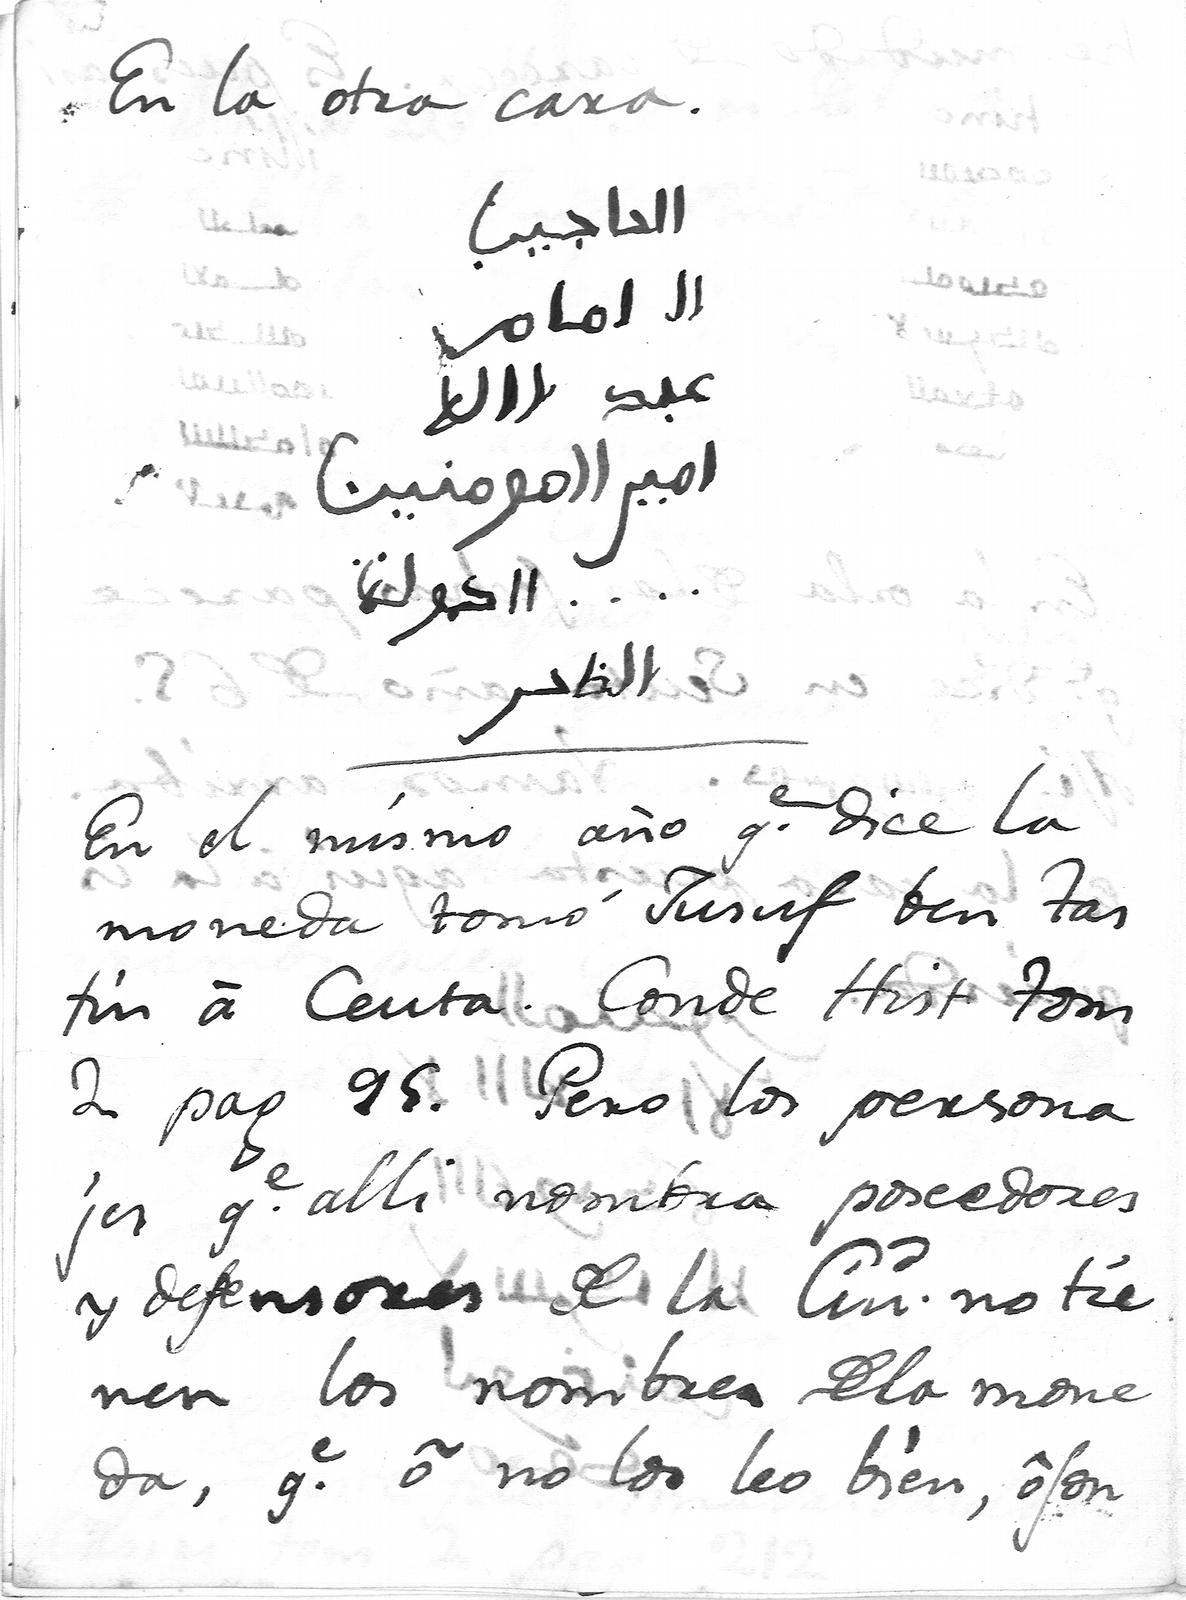 En la otra cara.
الحاجب
الامام
عبد الله
امير المومنين
.... الدولة
الظافر
En el mismo año q.e dice la
moneda tomó Jusuf ben Tas
fin á Ceuta. Conde Hist tom
2 pag 95. Pero los persona
jes q.e alli nombra poseedores
y defensores de la Ciu.d no tie
nen los nombres dela mone
da, q.e ó no los leo bien, ó son